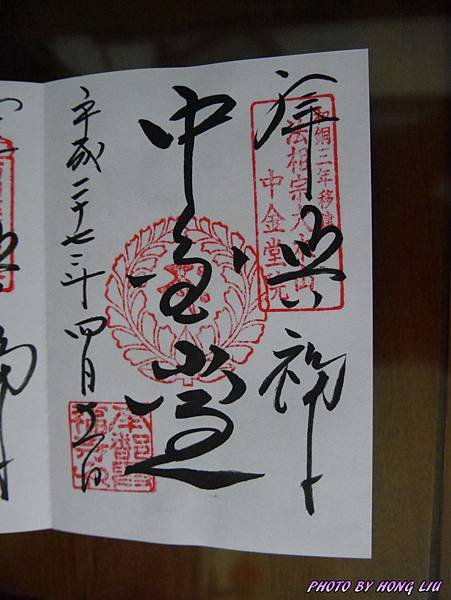 奉拝
興福寺
和銅三年移建
法相宗大本山
中金堂院
中金堂
平成二十七年四月五日
南都興福寺印
PHOTO BY HONG LIU